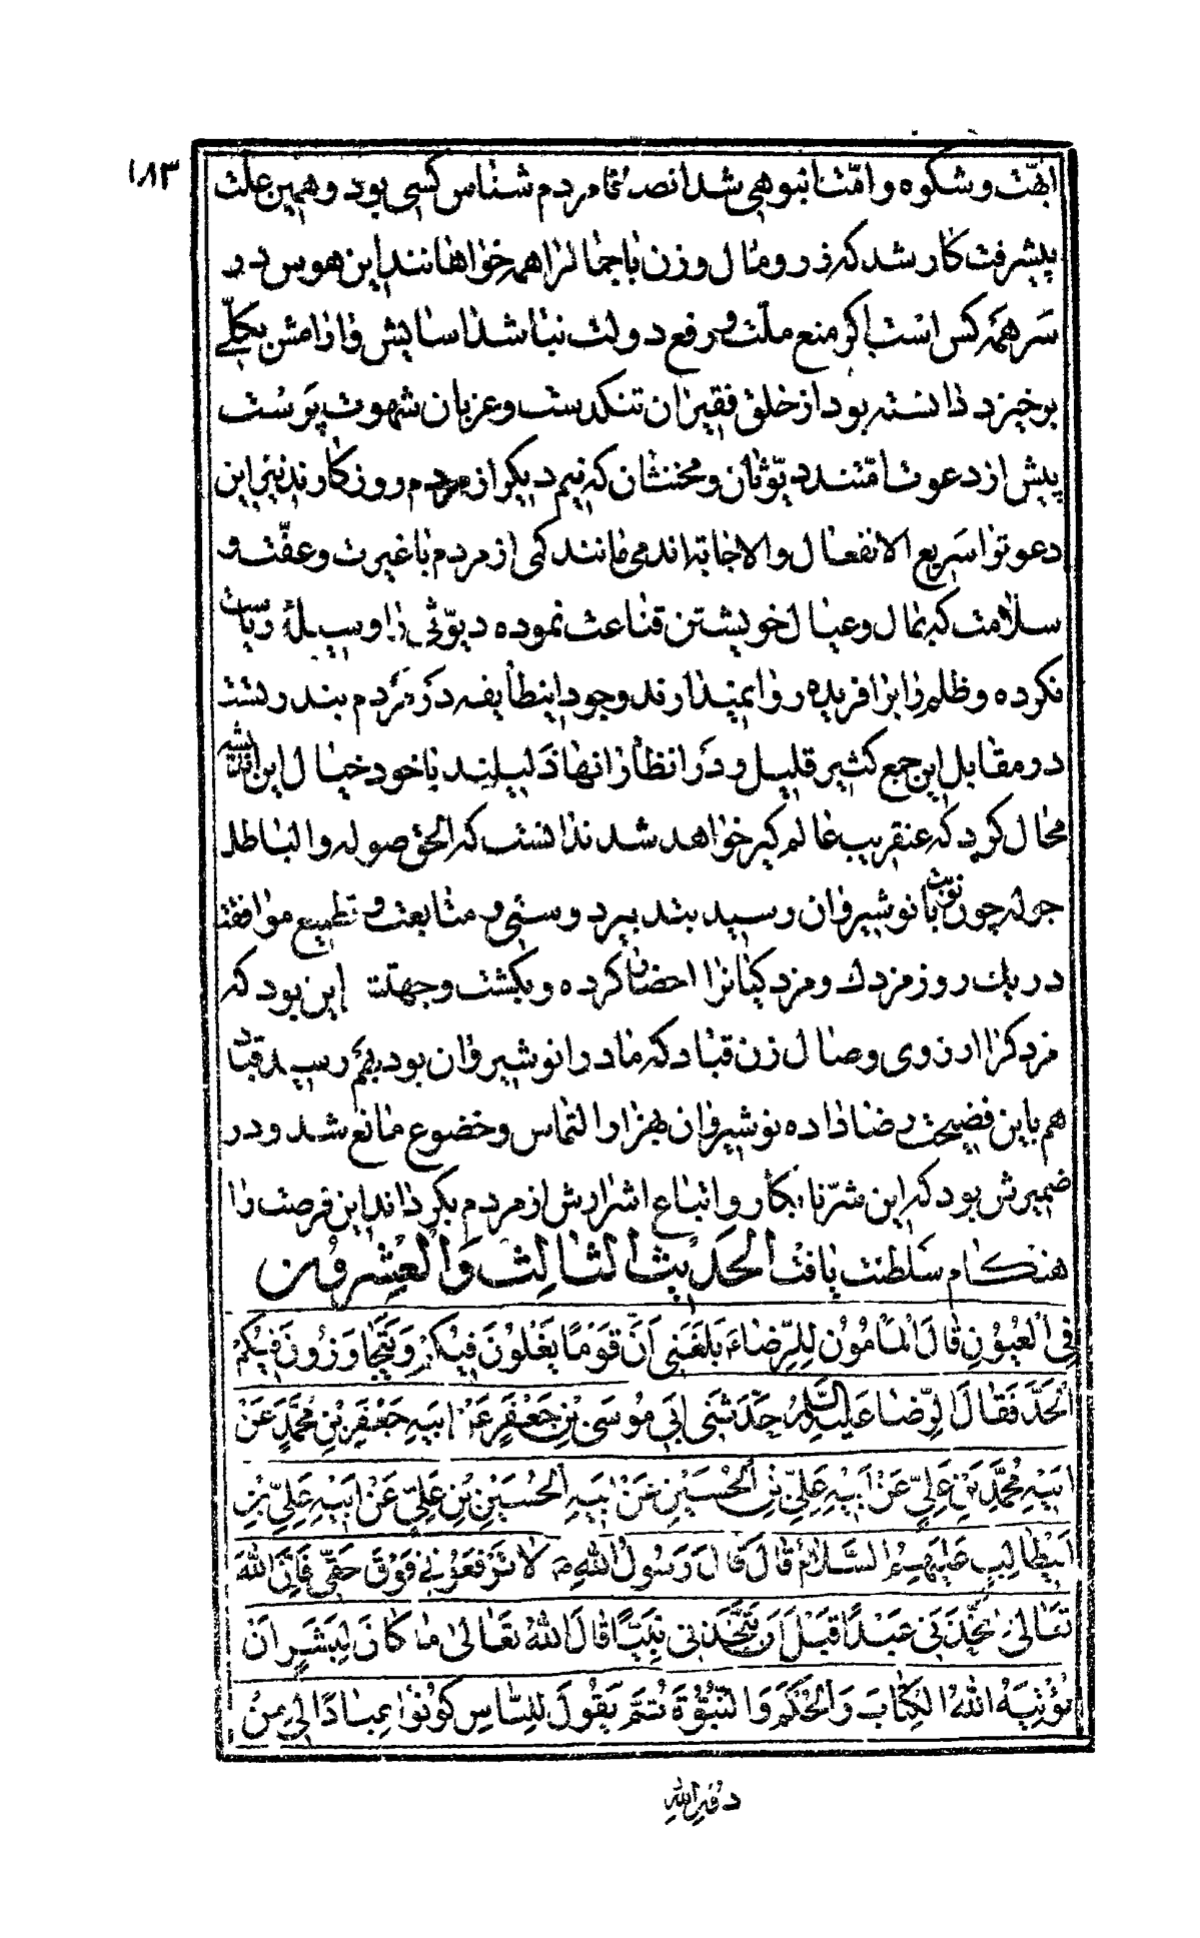 ۱۸۳
ابهّت و شکوه و امّت انبوهی شد انصد تمام مردم شناس کسی بود و همین علت
پیشرفت کار شد که زر و مال و زن با جمال را همه خواهانند این هوس در
سر همه کس است اگر منع ملّت و رفع دولت نباشد اسایش و ارامش بکلّی
برخیزد دانسته بود از خلق فقیران تنکدست و عزبان شهوت پرست
پیش از دعوت امّتند دیّوثان و مخنثان که نیم دیکر از مردم روزکارند نیز این
دعوت را سریع الانفعال والاجابة اند می مانند کمی از مردم با غیرت و عفّت و
سلامت که بمال و عیال خویشتن قناعت نموده دیوّثی را وسیلهٔ ریاست
نکرده و ظلم را بر افریده روا نمیدارند وجود اینطایفه در مردم بند رشت
در مقابل این جمع کثیر قلیل و در انظار انها ذلیلند با خود خیال این اندیشه
محال کرد که عنقریب عالم کیر خواهد شد ندانست که الحق صوله والباطل
جوله چون نوبت با نوشیروان رسید بتدبیر دوستی و متابعت و تطبیع موافقت
در یك روز مزدك و مزدکیانرا احضار کرده و بکشت وجهت این بود که
مزدك را ارزوی وصال زن قباد که مادر انوشیروان بود بهم رسید قباد
هم باین فضیحت رضا داده نوشیروان بهزار التماس و خضوع مانع شد و در
ضمیرش بود که این شرّ نابکار و اتباع اشرارش از مردم بکرداند این فرصت را
هنکام سلطنت یافت الحَدیثُ الثالِثُ وَالعِشرُونَ
فِی العُیُونِ قالَ المَامُونُ لِلرِّضاءَ بَلَغَنی اَنَّ قَوْمًا یَغْلُونَ فیکُمْ وَیَتَجاوَزُونَ فیکُمْ
الحَدَّ فَقالَ الرِّضا عَلَیهِ السَّلامُ حَدَّثَنی اَبی مُوسَی بْنُ جَعْفَرٍ عَنْ اَبیهِ جَعْفَرِ بْنِ مُحَمَّدٍ عَنْ
اَبیهِ مُحَمَّدِ بْنِ عَلِیٍّ عَنْ اَبیهِ عَلِیِّ بْنِ الحُسَیْنِ عَنْ اَبیهِ الحُسَیْنِ بْنِ عَلِیٍّ عَنْ اَبیهِ عَلِیِّ بْنِ
اَبیطالِبٍ عَلَیْهِمُ السَّلامُ قالَ قالَ رَسُولُ اللهِ ص لا تَرْفَعُونی فَوْقَ حَقّی فَاِنَّ اللهَ
تَعالی اتَّخَذَنی عَبْدًا قَبْلَ اَنْ یَتَّخِذَنی نَبِیًّا قالَ اللهُ تَعالی ما کانَ لِبَشَرٍ اَنْ
یُؤْتِیَهُ اللهُ الکِتابَ وَالحُکْمَ وَالنُّبُوَّةَ ثُمَّ یَقُولَ لِلنّاسِ کُونُوا عِبادًا لی مِنْ
دُونِ اللهِ